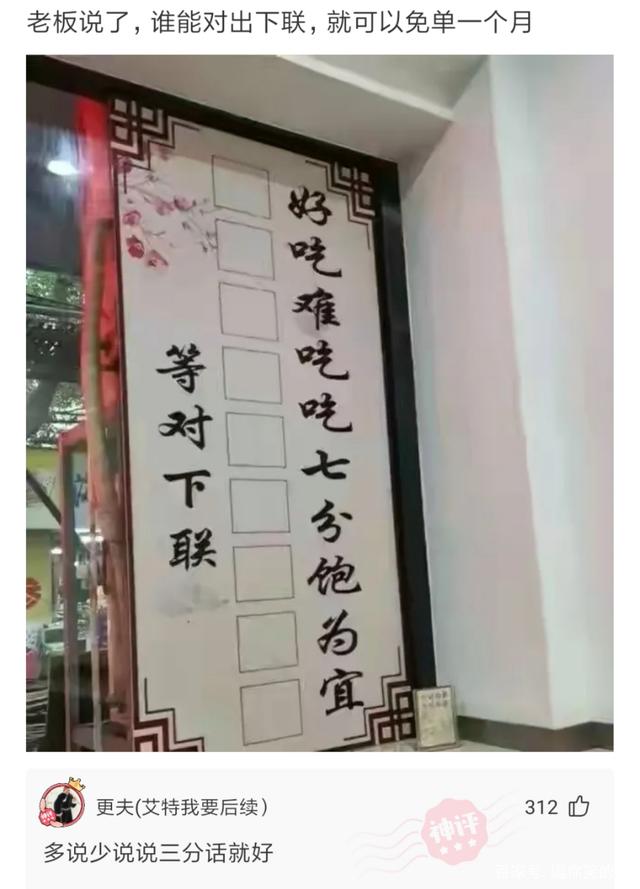 老板说了，谁能对出下联，就可以免单一个月
好吃难吃吃七分饱为宜
等对下联
更夫(艾特我要后续)
312
神评
多说少说说三分话就好